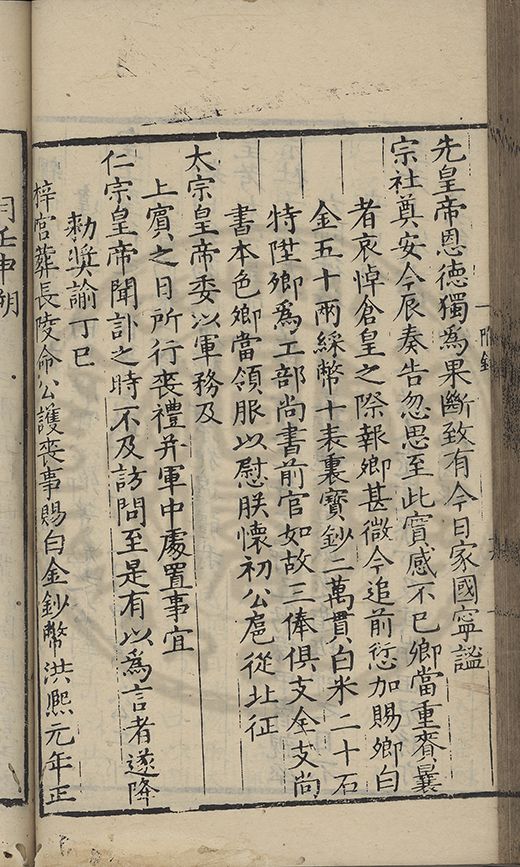 先皇帝恩德獨為果斷致有今日家國寧謐
宗社奠安今辰奏告忽思至此實感不已卿當重賚曩
者哀悼倉皇之際報卿甚微今追前愆加賜卿白
金五十兩綵幣十表裏寳鈔二萬貫白米二十石
特陞卿爲工部尚書前官如故三俸俱支全支尚
書本色卿當領服以慰朕懷初公扈從北征
太宗皇帝委以軍務及
上賓之日所行喪禮并軍中處置事宜
仁宗皇帝聞訃之時不及訪問至是有以爲言者遂降
勑奬諭丁巳
梓宫葬長陵命公護喪事賜白金鈔幣洪熙元年正
月壬申朔
附錄